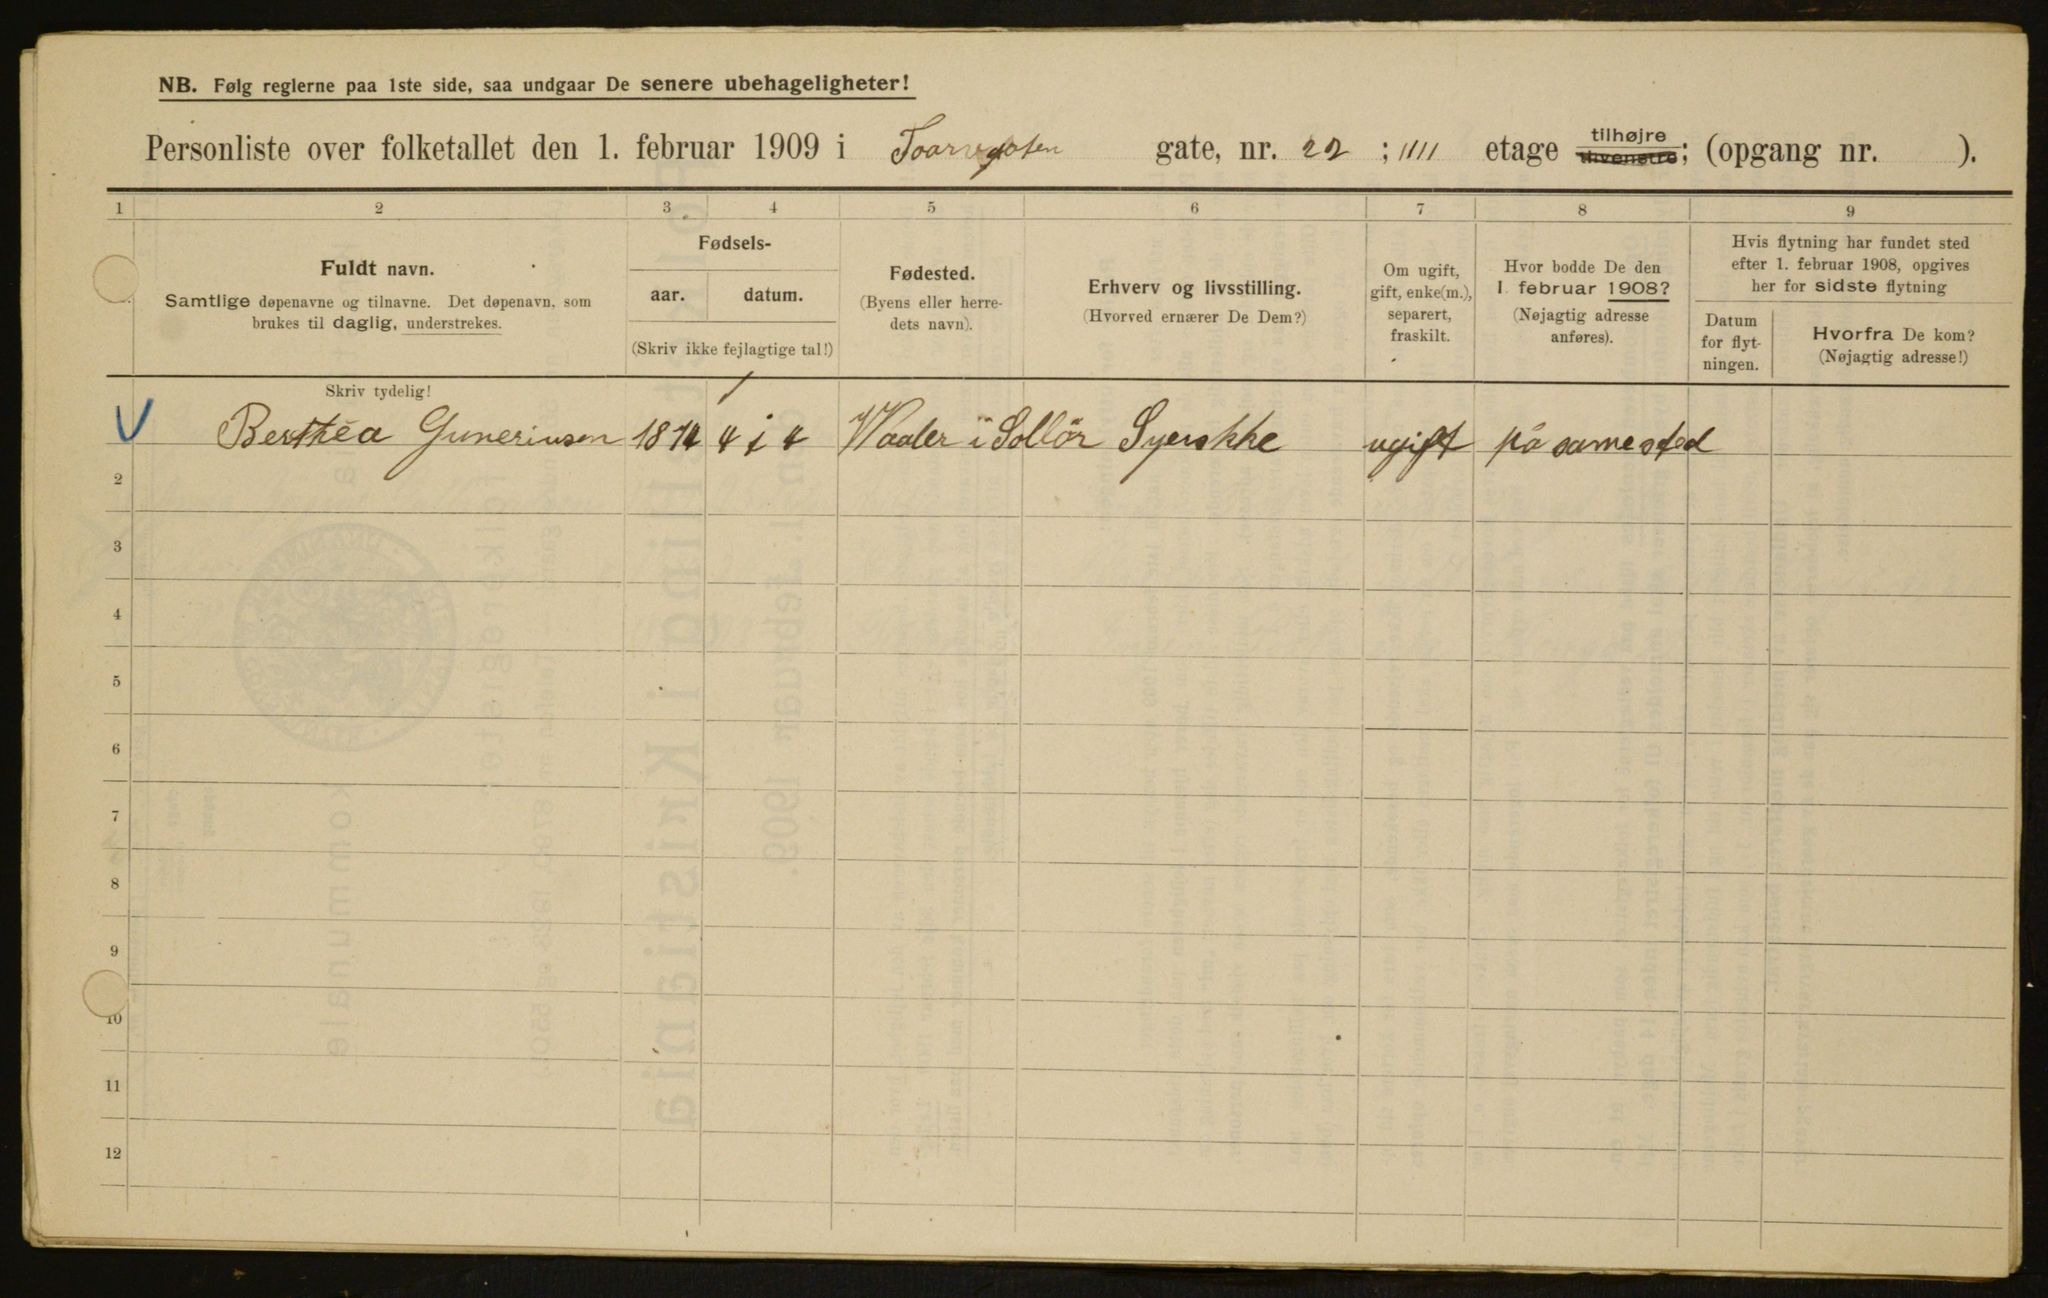 NB. Følg reglerne paa 1ste side, saa undgaar De senere ubehageligheter!
Personliste over folketallet den 1. februar 1909 i Toarvgaten gate, nr. 22 ; IIII etage tilhøjre tilvenstre; (opgang nr. ).
1 2 3 4 5 6 7 8 9
Fuldt navn.
Samtlige døpenavne og tilnavne. Det døpenavn, som
brukes til daglig, understrekes.
Skriv tydelig!
Fødsels-
aar. datum.
(Skriv ikke fejlagtige tal!)
Fødested.
(Byens eller herre-
dets navn).
Erhverv og livsstilling.
(Hvorved ernærer De Dem?)
Om ugift,
gift, enke(m.),
separert,
fraskilt.
Hvor bodde De den
1. februar 1908?
(Nøjagtig adresse
anføres).
Hvis flytning har fundet sted
efter 1. februar 1908, opgives
her for sidste flytning
Datum
for flyt-
ningen.
Hvorfra De kom?
(Nøjagtig adresse!)
Berthea Guneriusen 1874 Vaaler i Sollör Syerskke ugift på samested
2
3
4
5
6
7
8
9
10
11
12